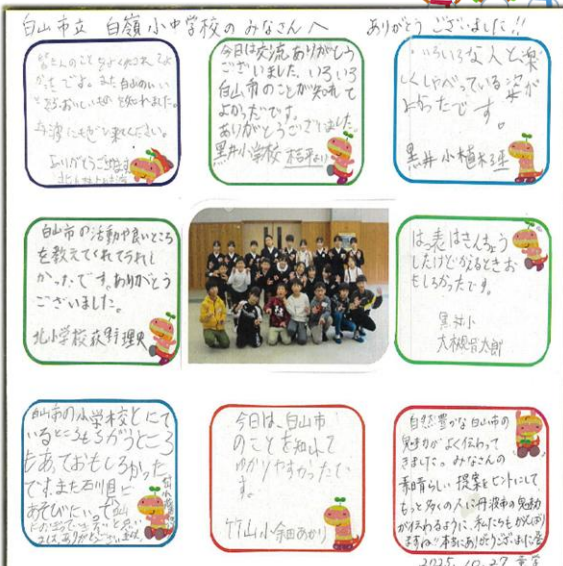 白山市立 白嶺小中学校のみなさんへ ありがとうございました!!
みなさんのことをよく知れてよ
かったです。また白山のいい
ところ、おいしいものを知れました。
ありがとうございます
今日は交流ありがとう
ございました。いろいろ
白山市のことが知れて
よかったです。
ありがとうございました。
黒井小学校
いろいろな人と楽
しくしゃべっている姿が
よかったです。
黒井小
白山市の活動や良いところ
を教えてくれてうれし
かったです。ありがとう
ございました。
北小学校
はっ表はきんちょう
したけどかえるときお
もしろかったです。
黒井小
白山市の小学校とにて
いるところもちがうところ
もあっておもしろかった
です。また石川県に
あそびにいって
ありがとうございました
今日は、白山市
のことを知れて
わかりやすかったで
す。
竹山小 余田あかり
自然豊かな白山市の
魅力がよく伝わって
きました。みなさんの
素晴らしい提案をヒントにして
もっと多くの人に丹波市の魅力
が伝わるように、私たちもがんばり
ますね!!本当にありがとうございました
2025.10.27